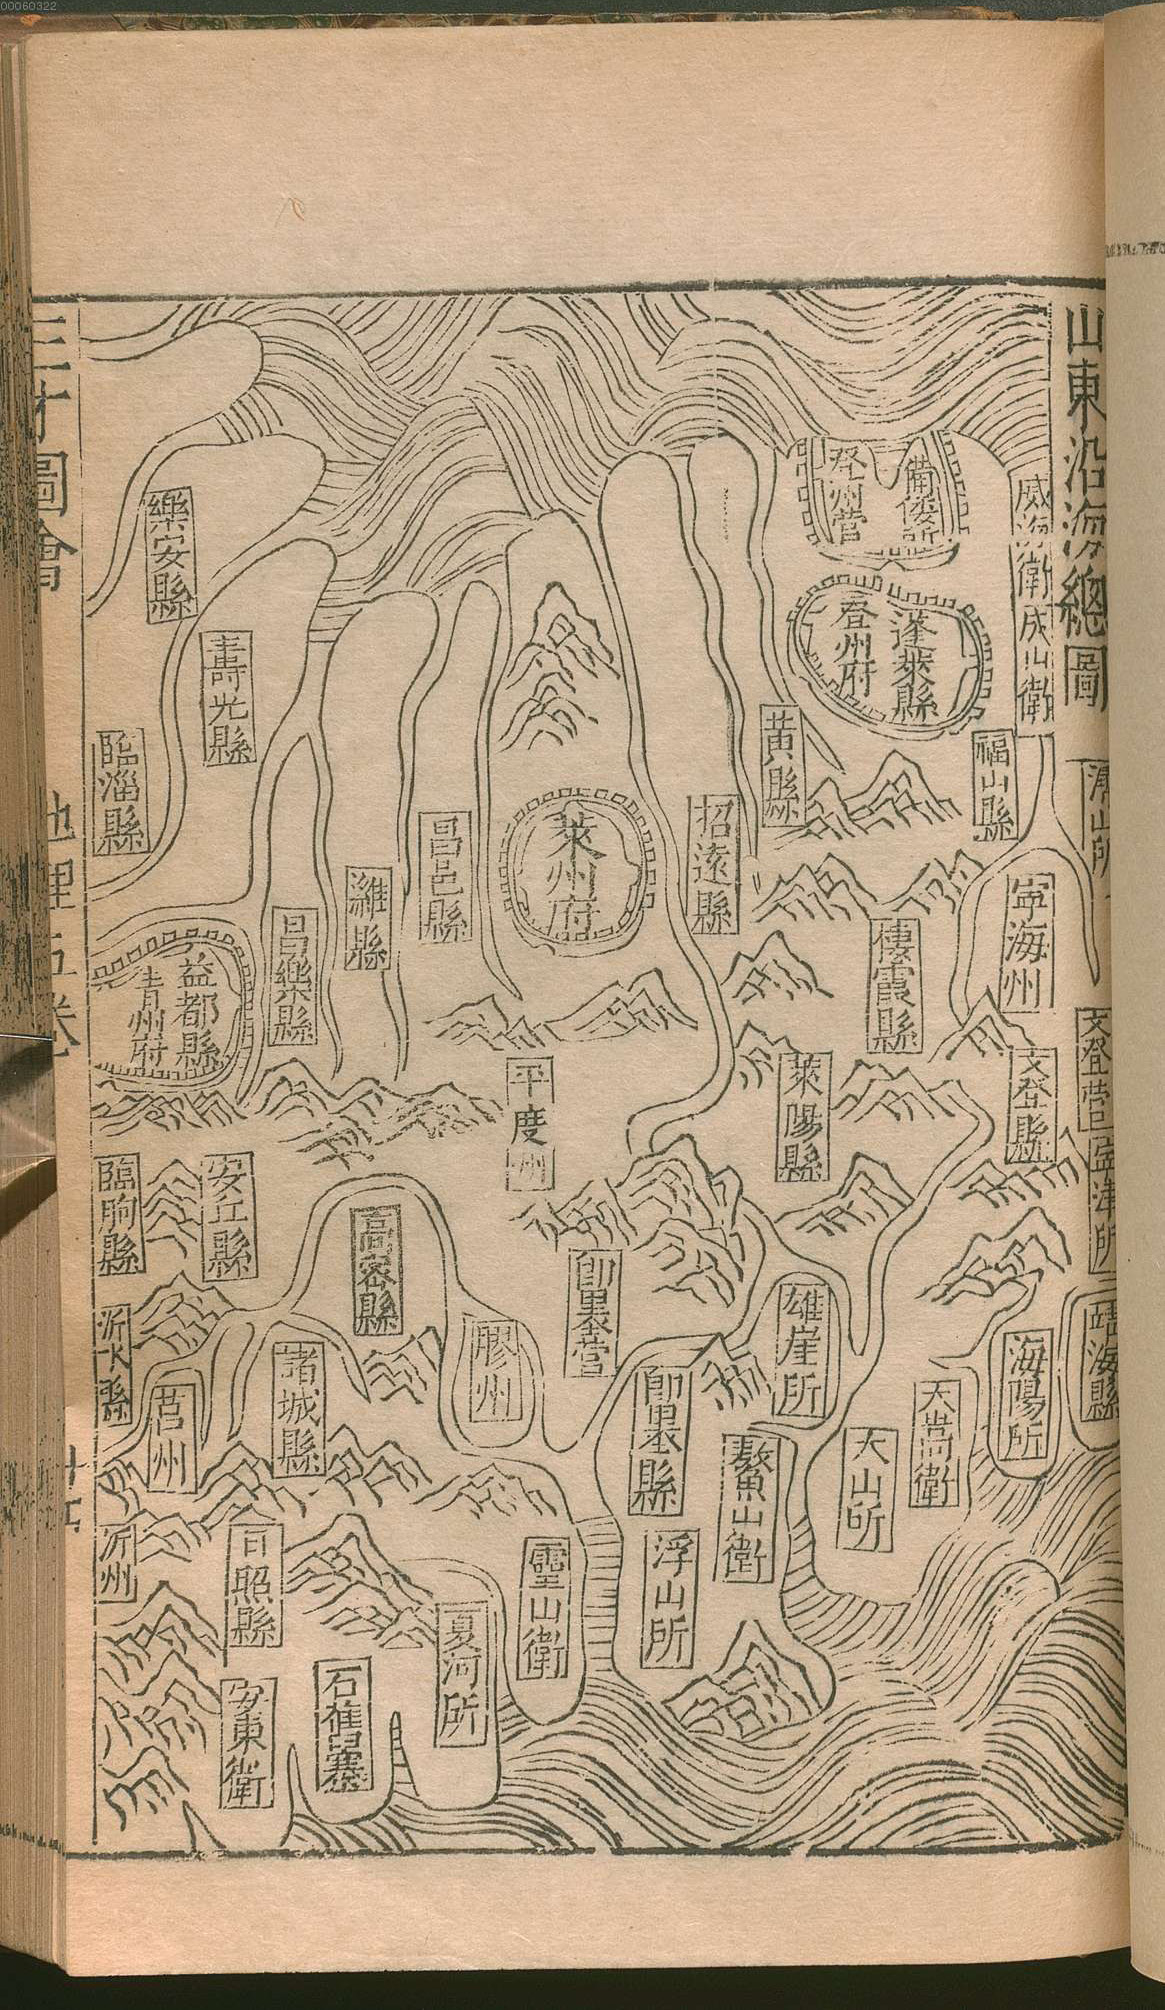 00060322
山東沿海總圖
威海衛
成山衛
備倭所
登州營
蓬萊縣
登州府
福山縣
黃縣
招遠縣
萊州府
昌邑縣
濰縣
昌樂縣
樂安縣
壽光縣
臨淄縣
益都縣
青州府
寧海州
棲霞縣
文登營
文登縣
寧津所
萊陽縣
平度州
安丘縣
臨朐縣
高密縣
即墨營
膠州
雄崖所
靖海縣
海陽所
大嵩衛
大山所
鰲山衛
即墨縣
浮山所
諸城縣
莒州
沂水縣
沂州
日照縣
靈山衛
夏河所
安東衛
三才圖會
地理五卷